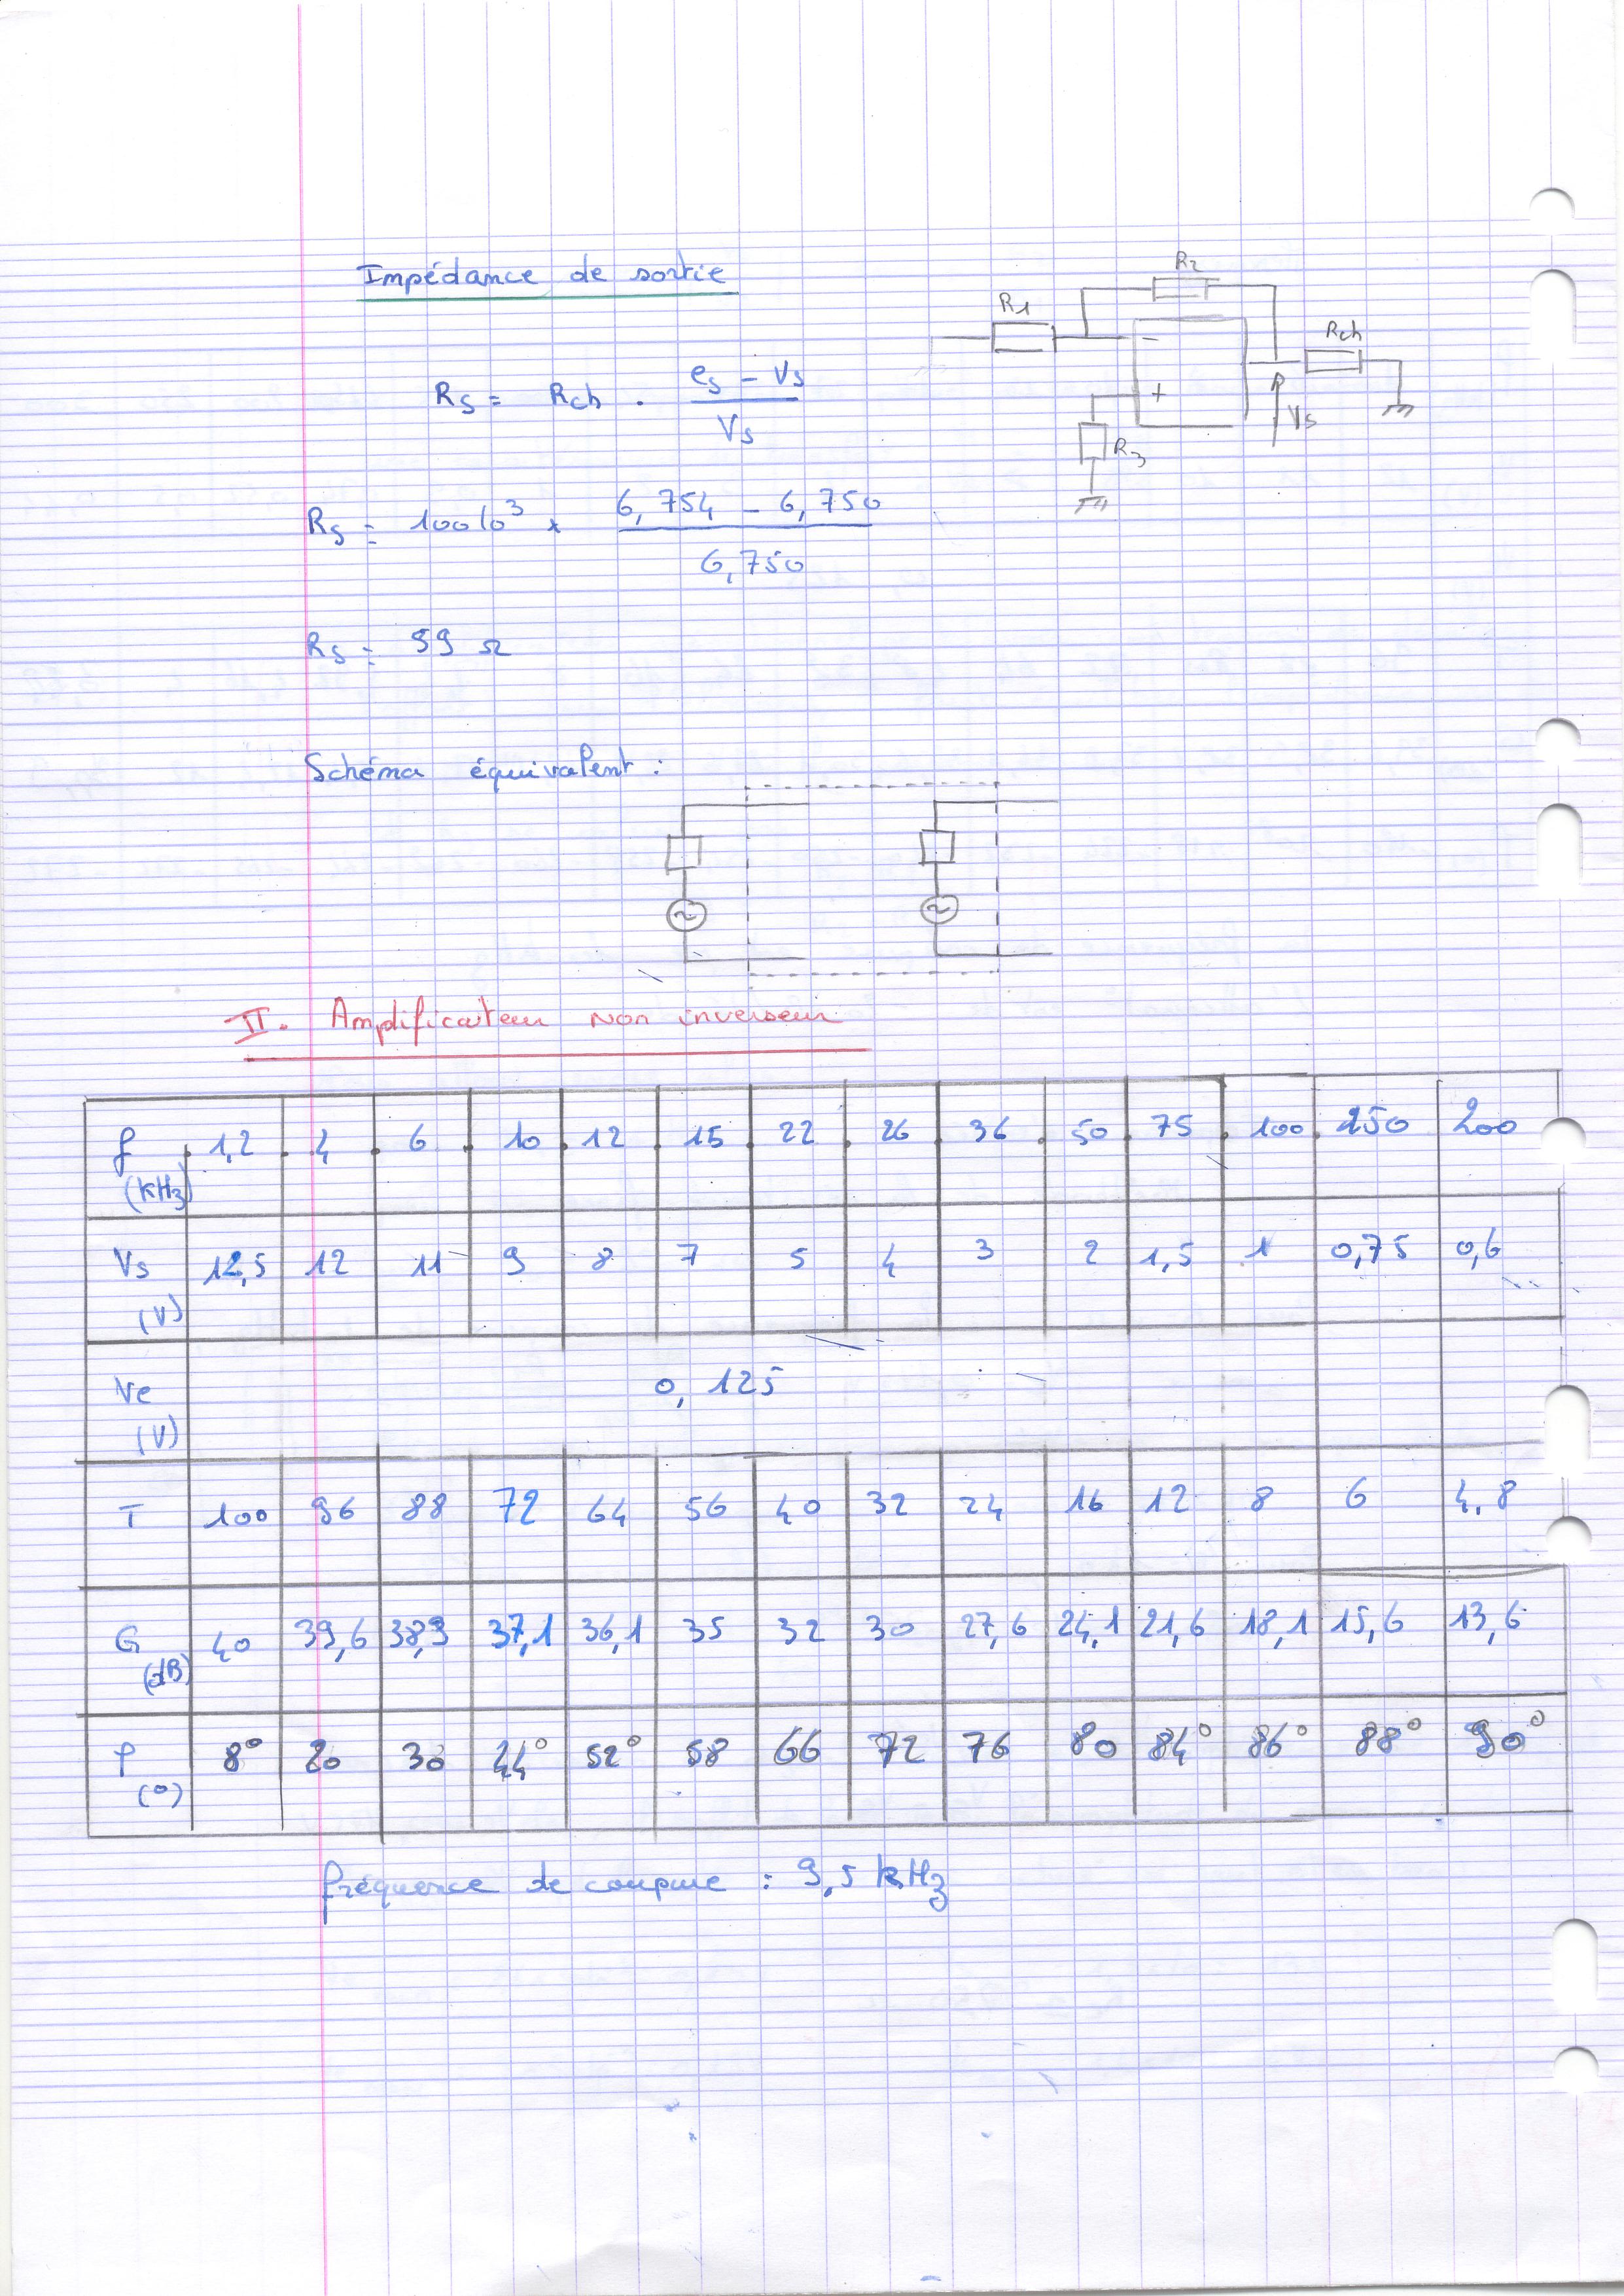 Impédance de sortie
R2
R1
Rch
-
+
Vs
R3
Rs = Rch . es - Vs
Vs
Rs = 100 10³ x 6,754 - 6,750
6,750
Rs = 59 Ω
Schéma équivalent :
~ ~
II. Amplificateur non inverseur
f (kHz) 1,2 4 6 10 12 15 22 26 36 50 75 100 150 200
Vs (V) 12,5 12 11 9 8 7 5 4 3 2 1,5 1 0,75 0,6
Ve (V) 0,125
T 100 96 88 72 64 56 40 32 24 16 12 8 6 4,8
G (dB) 40 39,6 38,9 37,1 36,1 35 32 30 27,6 24,1 21,6 18,1 15,6 13,6
φ (°) 8° 20 30 44° 52° 58 66 72 76 80 84° 86° 88° 90°
fréquence de coupure : 9,5 kHz